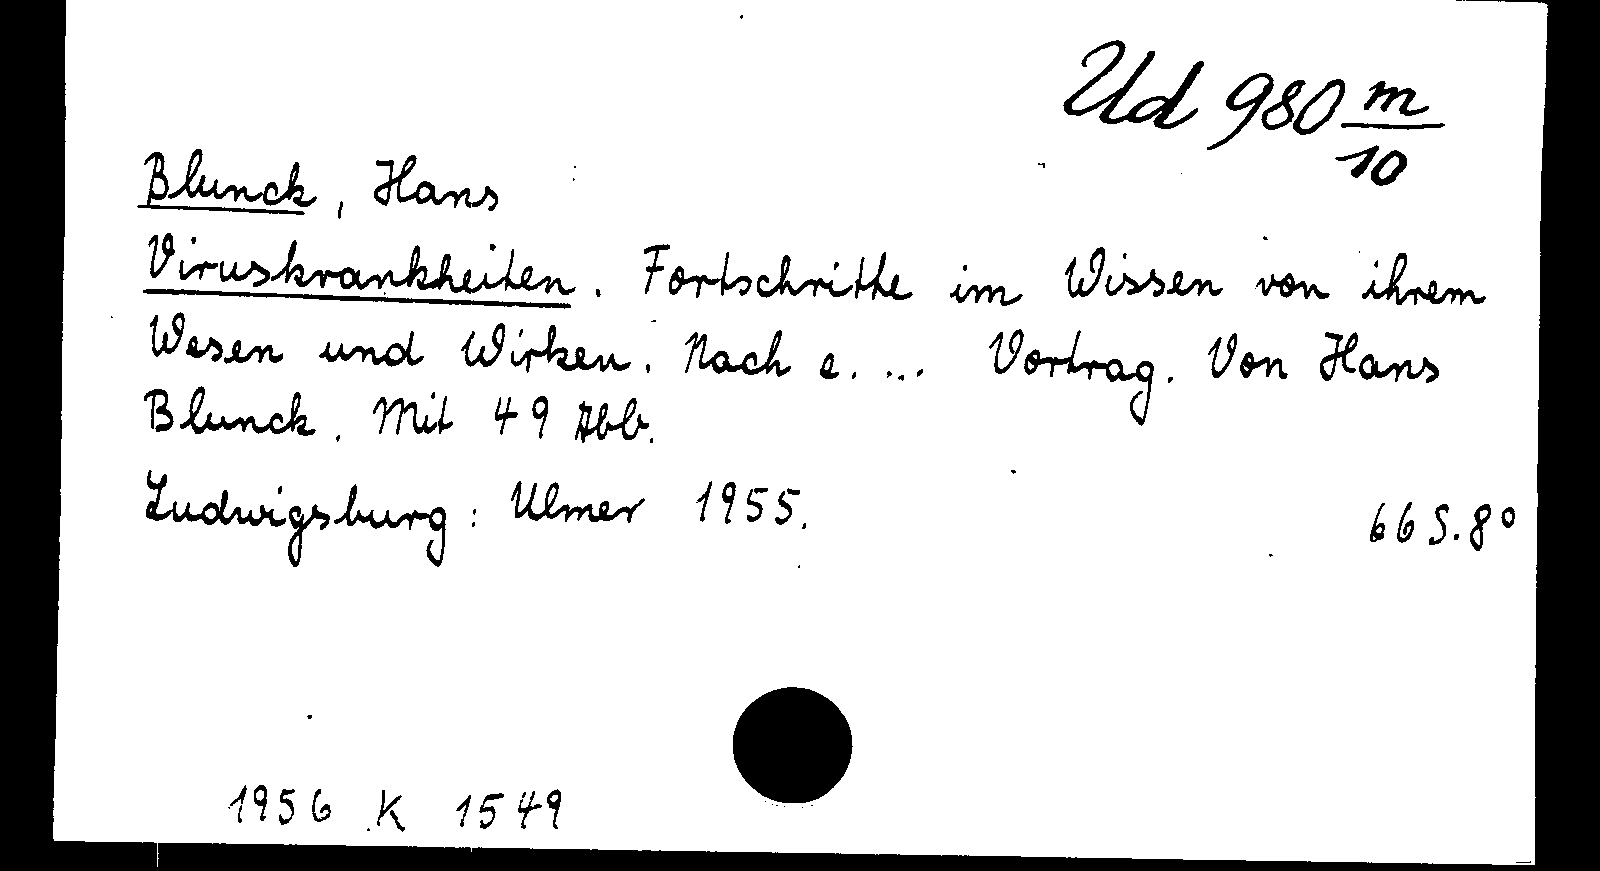 Ud 980 m/10
Blunck, Hans
Viruskrankheiten. Fortschritte im Wissen von ihrem
Wesen und Wirken. Nach e. ... Vortrag. Von Hans
Blunck. Mit 49 Abb.
Ludwigsburg: Ulmer 1955. 66 S. 8°
1956 K 1549